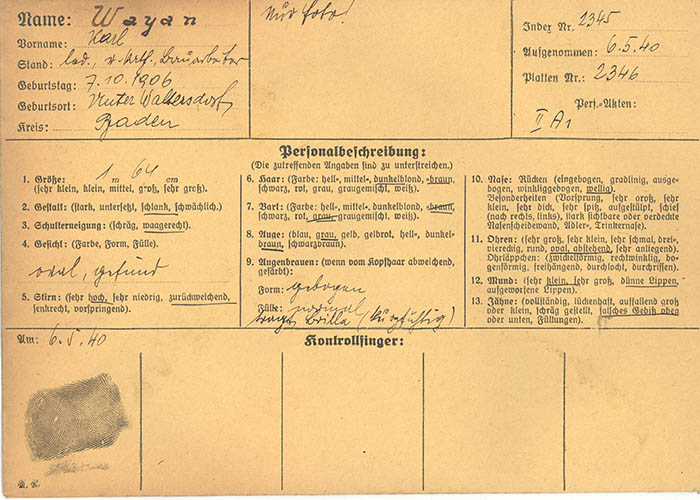 Name: Wayan
Vorname: Karl
Stand: led., r. kath., Bauarbeiter
Geburtstag: 7.10.1906
Geburtsort: Unter Waltersdorf,
Kreis: Baden
Nur Foto!
Index Nr. 2345
Aufgenommen: 6.5.40
Platten Nr.: 2346
Pers.-Akten:
II A1
Personalbeschreibung:
(Die zutreffenden Angaben sind zu unterstreichen.)
1. Größe: 1 m 64 cm
(sehr klein, klein, mittel, groß, sehr groß).
2. Gestalt: (stark, untersetzt, schlank, schwächlich.)
3. Schulterneigung: (schräg, waagerecht).
4. Gesicht: (Farbe, Form, Fülle).
oval, gesund
5. Stirn: (sehr hoch, sehr niedrig, zurückweichend,
senkrecht, vorspringend).
6. Haar: (Farbe: hell-, mittel-, dunkelblond, -braun,
schwarz, rot, grau, graugemischt, weiß).
7. Bart: (Farbe: hell-, mittel-, dunkelblond, -braun,
schwarz, rot, grau, graugemischt, weiß).
8. Auge: (blau, grau, gelb, gelbrot, hell-, dunkel-
braun, schwarzbraun).
9. Augenbrauen: (wenn vom Kopfhaar abweichend,
gefärbt):
Form: gebogen
Fülle: normal
trägt Brille (kurzsichtig)
10. Nase: Rücken (eingebogen, gradlinig, ausge-
bogen, winkliggebogen, wellig).
Besonderheiten (Vorsprung, sehr groß, sehr
klein, sehr dick, sehr spitz, aufgestülpt, schief
(nach rechts, links), stark sichtbare oder verdeckte
Nasenscheidewand, Adler-, Trinkernase).
11. Ohren: (sehr groß, sehr klein, sehr schmal, drei-,
viereckig, rund, oval, abstehend, sehr anliegend).
Ohrläppchen: (zwickelförmig, rechtwinklig, bo-
gensförmig, freihängend, durchlocht, durchrissen).
12. Mund: (sehr klein, sehr groß, dünne Lippen,
aufgeworfene Lippen).
13. Zähne: (vollständig, lückenhaft, auffallend groß
oder klein, schräg gestellt, falsches Gebiß oben
oder unten, Füllungen).
Am: 6.5.40
Kontrollfinger: